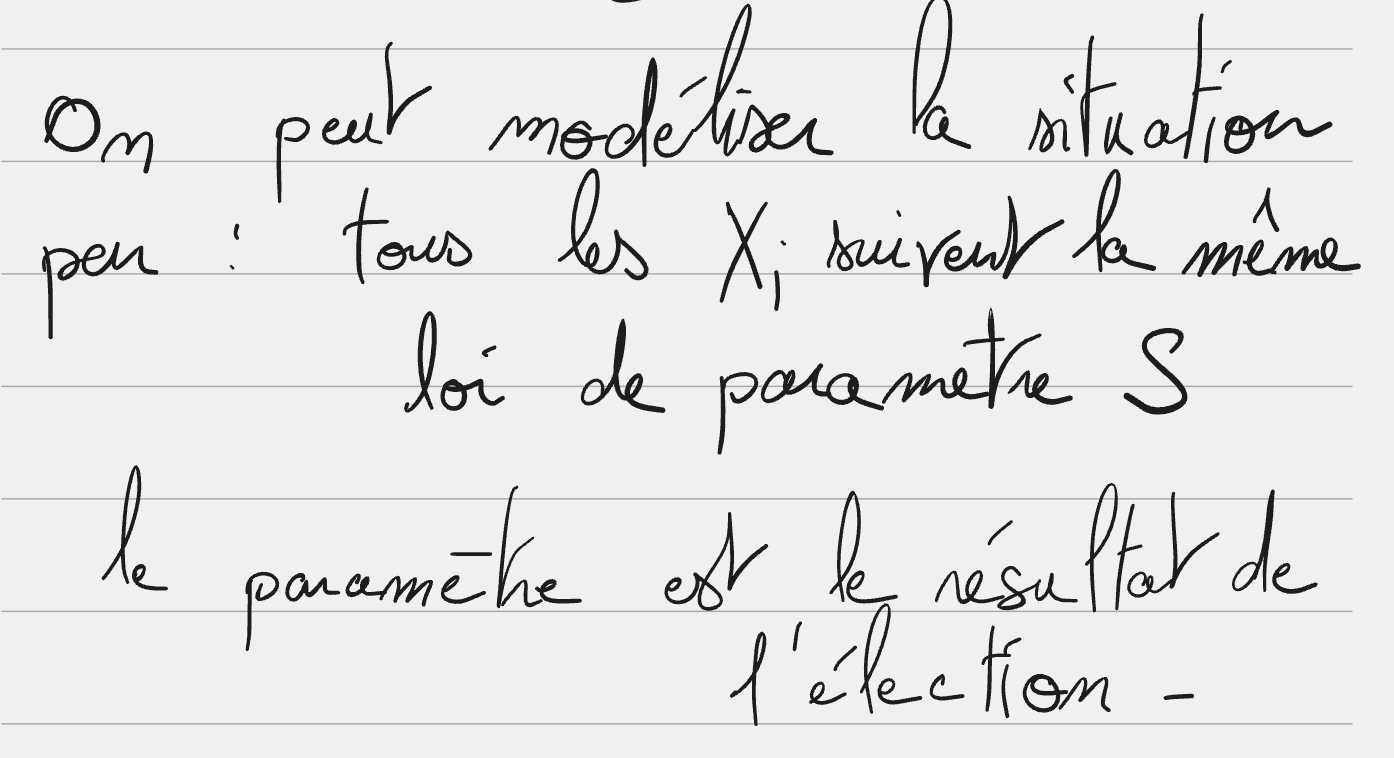 On peut modéliser la situation
par : tous les Xi suivent la même
loi de paramètre S
le paramètre est le résultat de
l'élection -